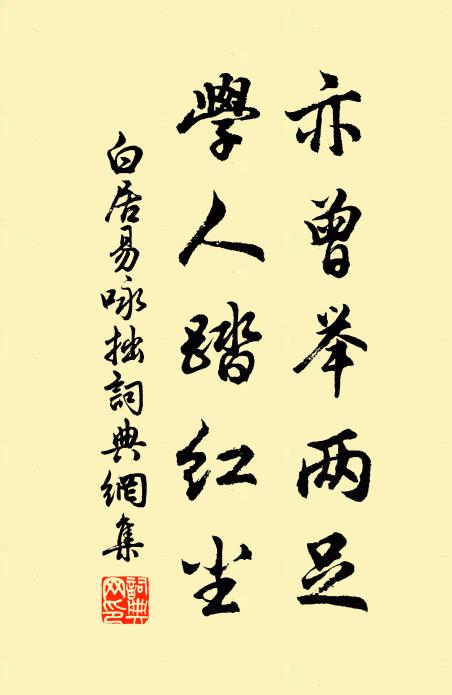 亦曾举两足
學人踏红尘
白居易咏拙詞典網集
詞典网印